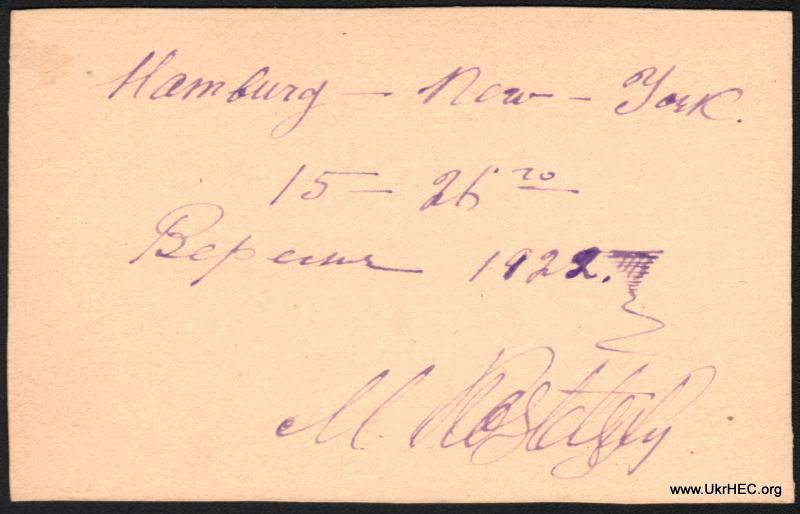 Hamburg — New – York.
15 – 26 го
Вересня 1922.
M.
www.UkrHEC.org